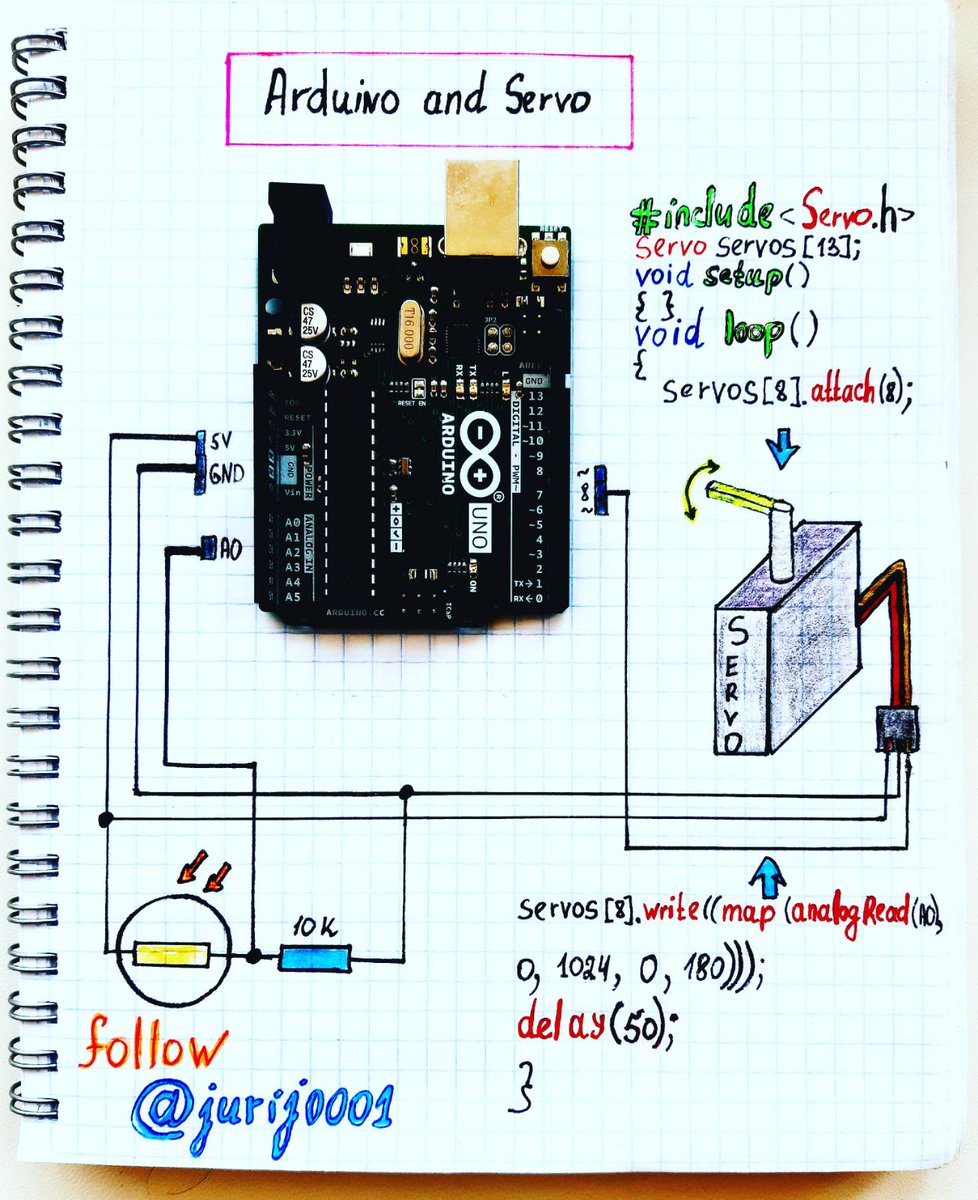 Arduino and Servo
#include <Servo.h>
Servo servos[13];
void setup()
{ }
void loop()
{
servos[8].attach(8);
RESET
CS
47
25V
CS
47
25V
T16.000
JP2
RESET EN
RX TX
L
AREF
GND
13
12
~11
~10
~9
8
7
~6
~5
4
~3
2
TX→1
RX←0
DIGITAL - PWM~
ARDUINO
UNO
ON
RESET
3.3V
5V
GND
Vin
POWER
A0
A1
A2
A3
A4
A5
ANALOG IN
ARDUINO.CC
ICSP
5V
GND
A0
~8~
SERVO
10K
servos[8].write((map(analogRead(A0),
0, 1024, 0, 180)));
delay(50);
}
follow
@jurij0001